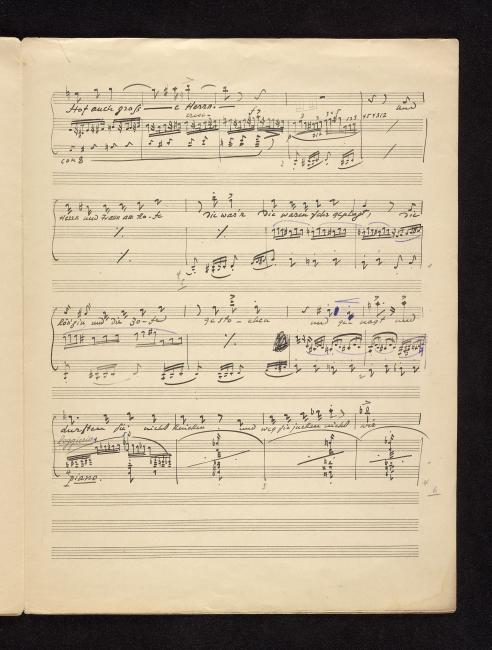 Hof auch groß — e Herrn. — und
cresc.
con 8
Herrn und Fraun am Ho-fe die war'n die waren sehr geplagt, die
Königin und die Zo-fe gesto-chen und ge nagt und
durften sie nicht knicken und weg sie jucken nicht wir
piano.